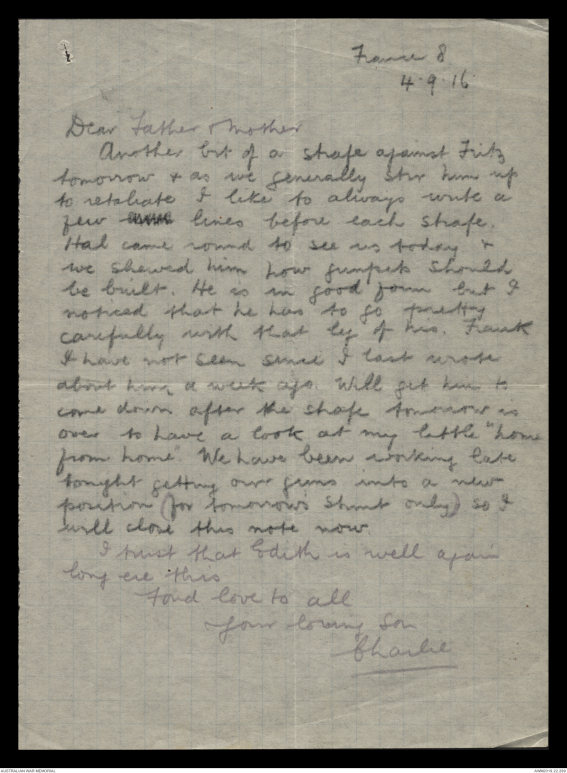 France 8
4.9.16
Dear Father & Mother
Another bit of a strafe against Fritz
tomorrow & as we generally stir him up
to retaliate I like to always write a
few lines before each strafe.
Hal came round to see us today &
we shewed him how gunpits should
be built. He is in good form but I
noticed that he has to go pretty
carefully with that leg of his. Frank
I have not seen since I last wrote
about him, a week ago. Will get him to
come down after the strafe tomorrow is
over to have a look at my little "home
from home". We have been working late
tonight getting our guns into a new
position (for tomorrow's stunt only) so I
will close this note now.
I trust that Edith is well again
long ere this
Fond love to all
Your loving son
Charlie
AUSTRALIAN WAR MEMORIAL